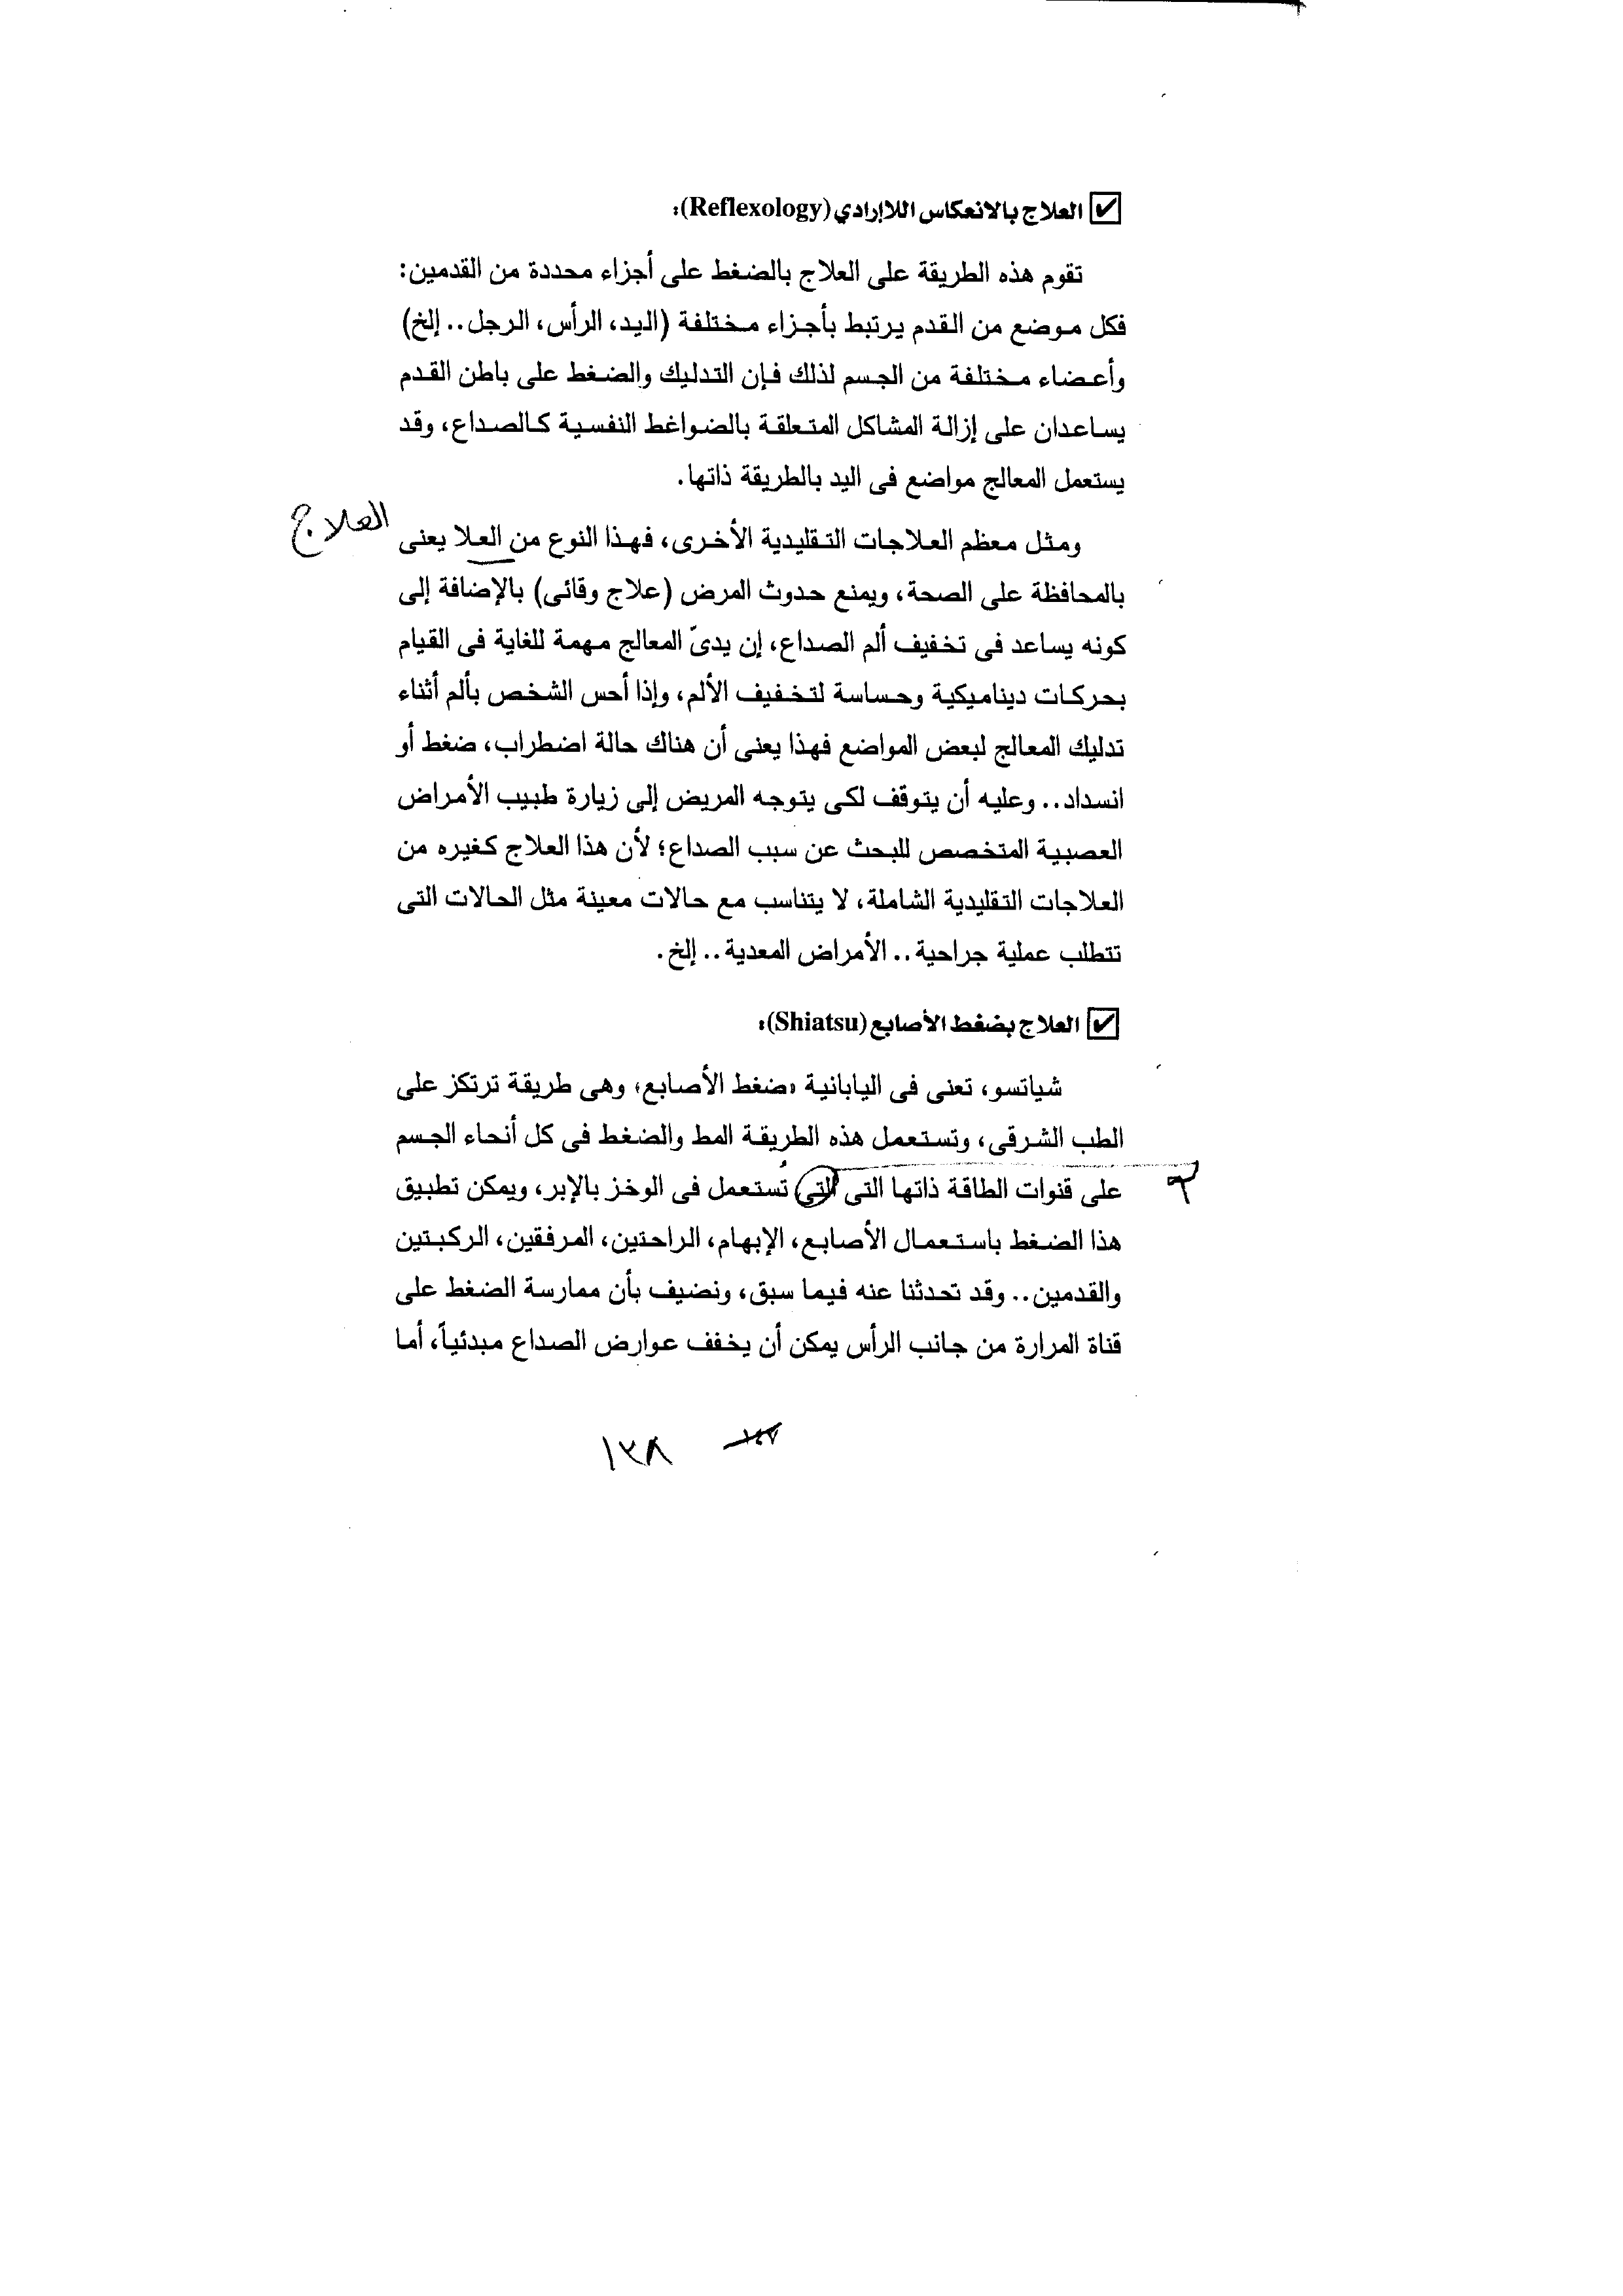 ☑ العلاج بالانعكاس اللاإرادي (Reflexology):
تقوم هذه الطريقة على العلاج بالضغط على أجزاء محددة من القدمين:
فكل موضع من القدم يرتبط بأجزاء مختلفة (اليد، الرأس، الرجل.. إلخ)
وأعضاء مختلفة من الجسم لذلك فإن التدليك والضغط على باطن القدم
يساعدان على إزالة المشاكل المتعلقة بالضواغط النفسية كالصداع، وقد
يستعمل المعالج مواضع فى اليد بالطريقة ذاتها.
ومثل معظم العلاجات التقليدية الأخرى، فهذا النوع من العلا يعنى
العلاج
بالمحافظة على الصحة، ويمنع حدوث المرض (علاج وقائى) بالإضافة إلى
كونه يساعد فى تخفيف ألم الصداع، إن يدىّ المعالج مهمة للغاية فى القيام
بحركات ديناميكية وحساسة لتخفيف الألم، وإذا أحس الشخص بألم أثناء
تدليك المعالج لبعض المواضع فهذا يعنى أن هناك حالة اضطراب، ضغط أو
انسداد.. وعليه أن يتوقف لكى يتوجه المريض إلى زيارة طبيب الأمراض
العصبية المتخصص للبحث عن سبب الصداع؛ لأن هذا العلاج كغيره من
العلاجات التقليدية الشاملة، لا يتناسب مع حالات معينة مثل الحالات التى
تتطلب عملية جراحية.. الأمراض المعدية.. إلخ.
☑ العلاج بضغط الأصابع (Shiatsu):
شياتسو، تعنى فى اليابانية «ضغط الأصابع» وهى طريقة ترتكز على
الطب الشرقى، وتستعمل هذه الطريقة المط والضغط فى كل أنحاء الجسم
على قنوات الطاقة ذاتها التى التى تُستعمل فى الوخز بالإبر، ويمكن تطبيق
هذا الضغط باستعمال الأصابع، الإبهام، الراحتين، المرفقين، الركبتين
والقدمين.. وقد تحدثنا عنه فيما سبق، ونضيف بأن ممارسة الضغط على
قناة المرارة من جانب الرأس يمكن أن يخفف عوارض الصداع مبدئياً، أما
١٤٧ ١٣٨